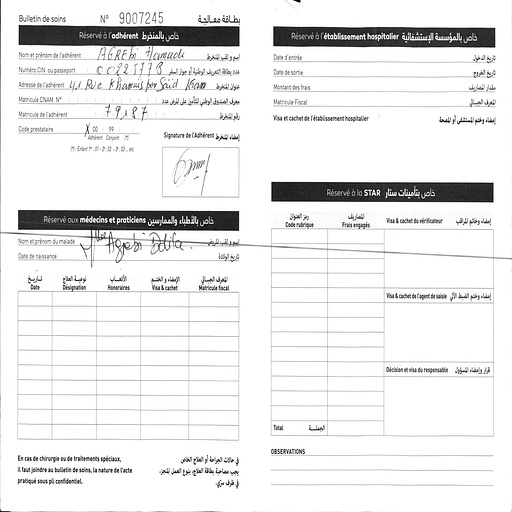 Bulletin de soins N° 9007245 بطاقة معالجة
Réservé à l'adhérent خاص بالمنخرط
Nom et prénom de l'adhérent AGREBI Hamadi إسم و لقب المنخرط
Numéro CIN ou passeport 00225773 عدد بطاقة التعريف الوطنية أو جواز السفر
Adresse de l'adhérent Rue Khamis عنوان المنخرط
Matricule CNAM N° معرف الصندوق الوطني للتأمين على المرض عدد
Matricule de l'adhérent 79187 رقم المنخرط
Code prestataire X 00 99 Signature de l'Adhérent إمضاء المنخرط
Adhérent Conjoint (*)
(*) : Enfant 1er : 01 - 2e : 02 - 3e : 03 ... etc
Réservé aux médecins et praticiens خاص بالأطباء والممارسين
Nom et prénom du malade Agrebi إسم و لقب المريض
Date de naissance تاريخ الولادة
تاريخ نوعية العلاج الأتعاب الإمضاء و الختم المعرف الجبائي
Date Désignation Honoraires Visa & cachet Matricule fiscal
En cas de chirurgie ou de traitements spéciaux,
il faut joindre au bulletin de soins, la nature de l'acte
pratiqué sous pli confidentiel.
في حالات الجراحة أو العلاج الخاص
يجب مصاحبة بطاقة العلاج، بنوع العمل المنجز،
في ظرف سري.
Réservé à l'établissement hospitalier خاص بالمؤسسة الإستشفائية
Date d'entrée تاريخ الدخول
Date de sortie تاريخ الخروج
Montant des frais مقدار المصاريف
Matricule Fiscal المعرف الجبائي
Visa et cachet de l'établissement hospitalier إمضاء وختم المستشفى أو المصحة
Réservé à la STAR خاص بتأمينات ستار
رمز العنوان المصاريف Visa & cachet du vérificateur إمضاء وخاتم المراقب
Code rubrique Frais engagés
Visa & cachet de l'agent de saisie إمضاء وختم الضبط الآلي
Décision et visa du responsable قرار وإمضاء المسؤول
Total الجملة
OBSERVATIONS